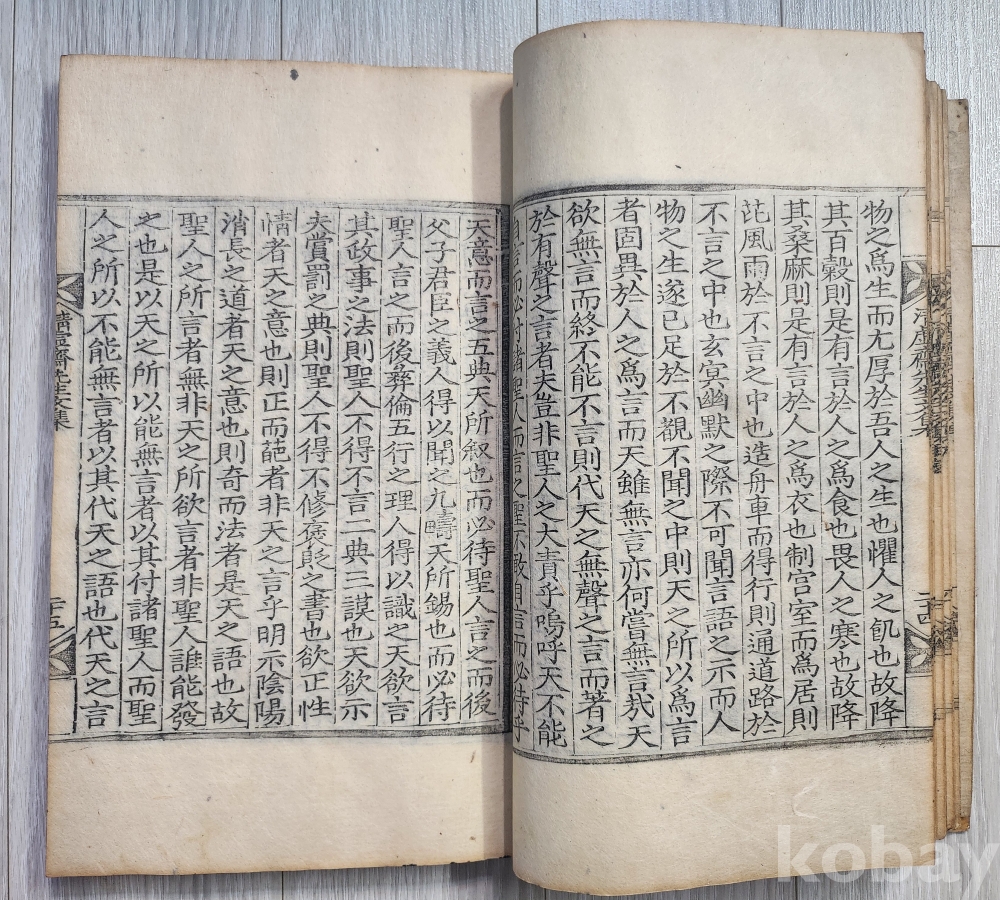 物之爲生而尤厚於吾人之生也懼人之飢也故降
其百糓則是有言於人之爲食也畏人之寒也故降
其桑麻則是有言於人之爲衣也制宫室而爲居則
芘風雨於不言之中也造舟車而得行則通道路於
不言之中也玄冥幽默之際不可聞言語之示而人
物之生遂已足於不覩不聞之中則天之所以爲言
者固異於人之爲言而天雖無言亦何甞無言㦲天
欲無言而終不能不言則代天之無聲之言而著之
於有聲之言者夫豈非聖人之大責乎嗚呼天不能
言而必付諸聖人而言之聖不敢自言而必待乎
天意而言之五典天所叙也而必待聖人言之而後
父子君臣之義人得以聞之九疇天所錫也而必待
聖人言之而後彜倫五行之理人得以識之天欲言
其政事之法則聖人不得不言二典三謨也天欲示
夫賞罰之典則聖人不得不修褒貶之書也欲正性
情者天之意也則正而葩者非天之言乎明示陰陽
消長之道者天之意也則奇而法者是天之語也故
聖人之所言者無非天之所欲言者非聖人誰能發
之也是以天之所以能無言者以其付諸聖人而聖
人之所以不能無言者以其代天之語也代天之言
二十五
kobay